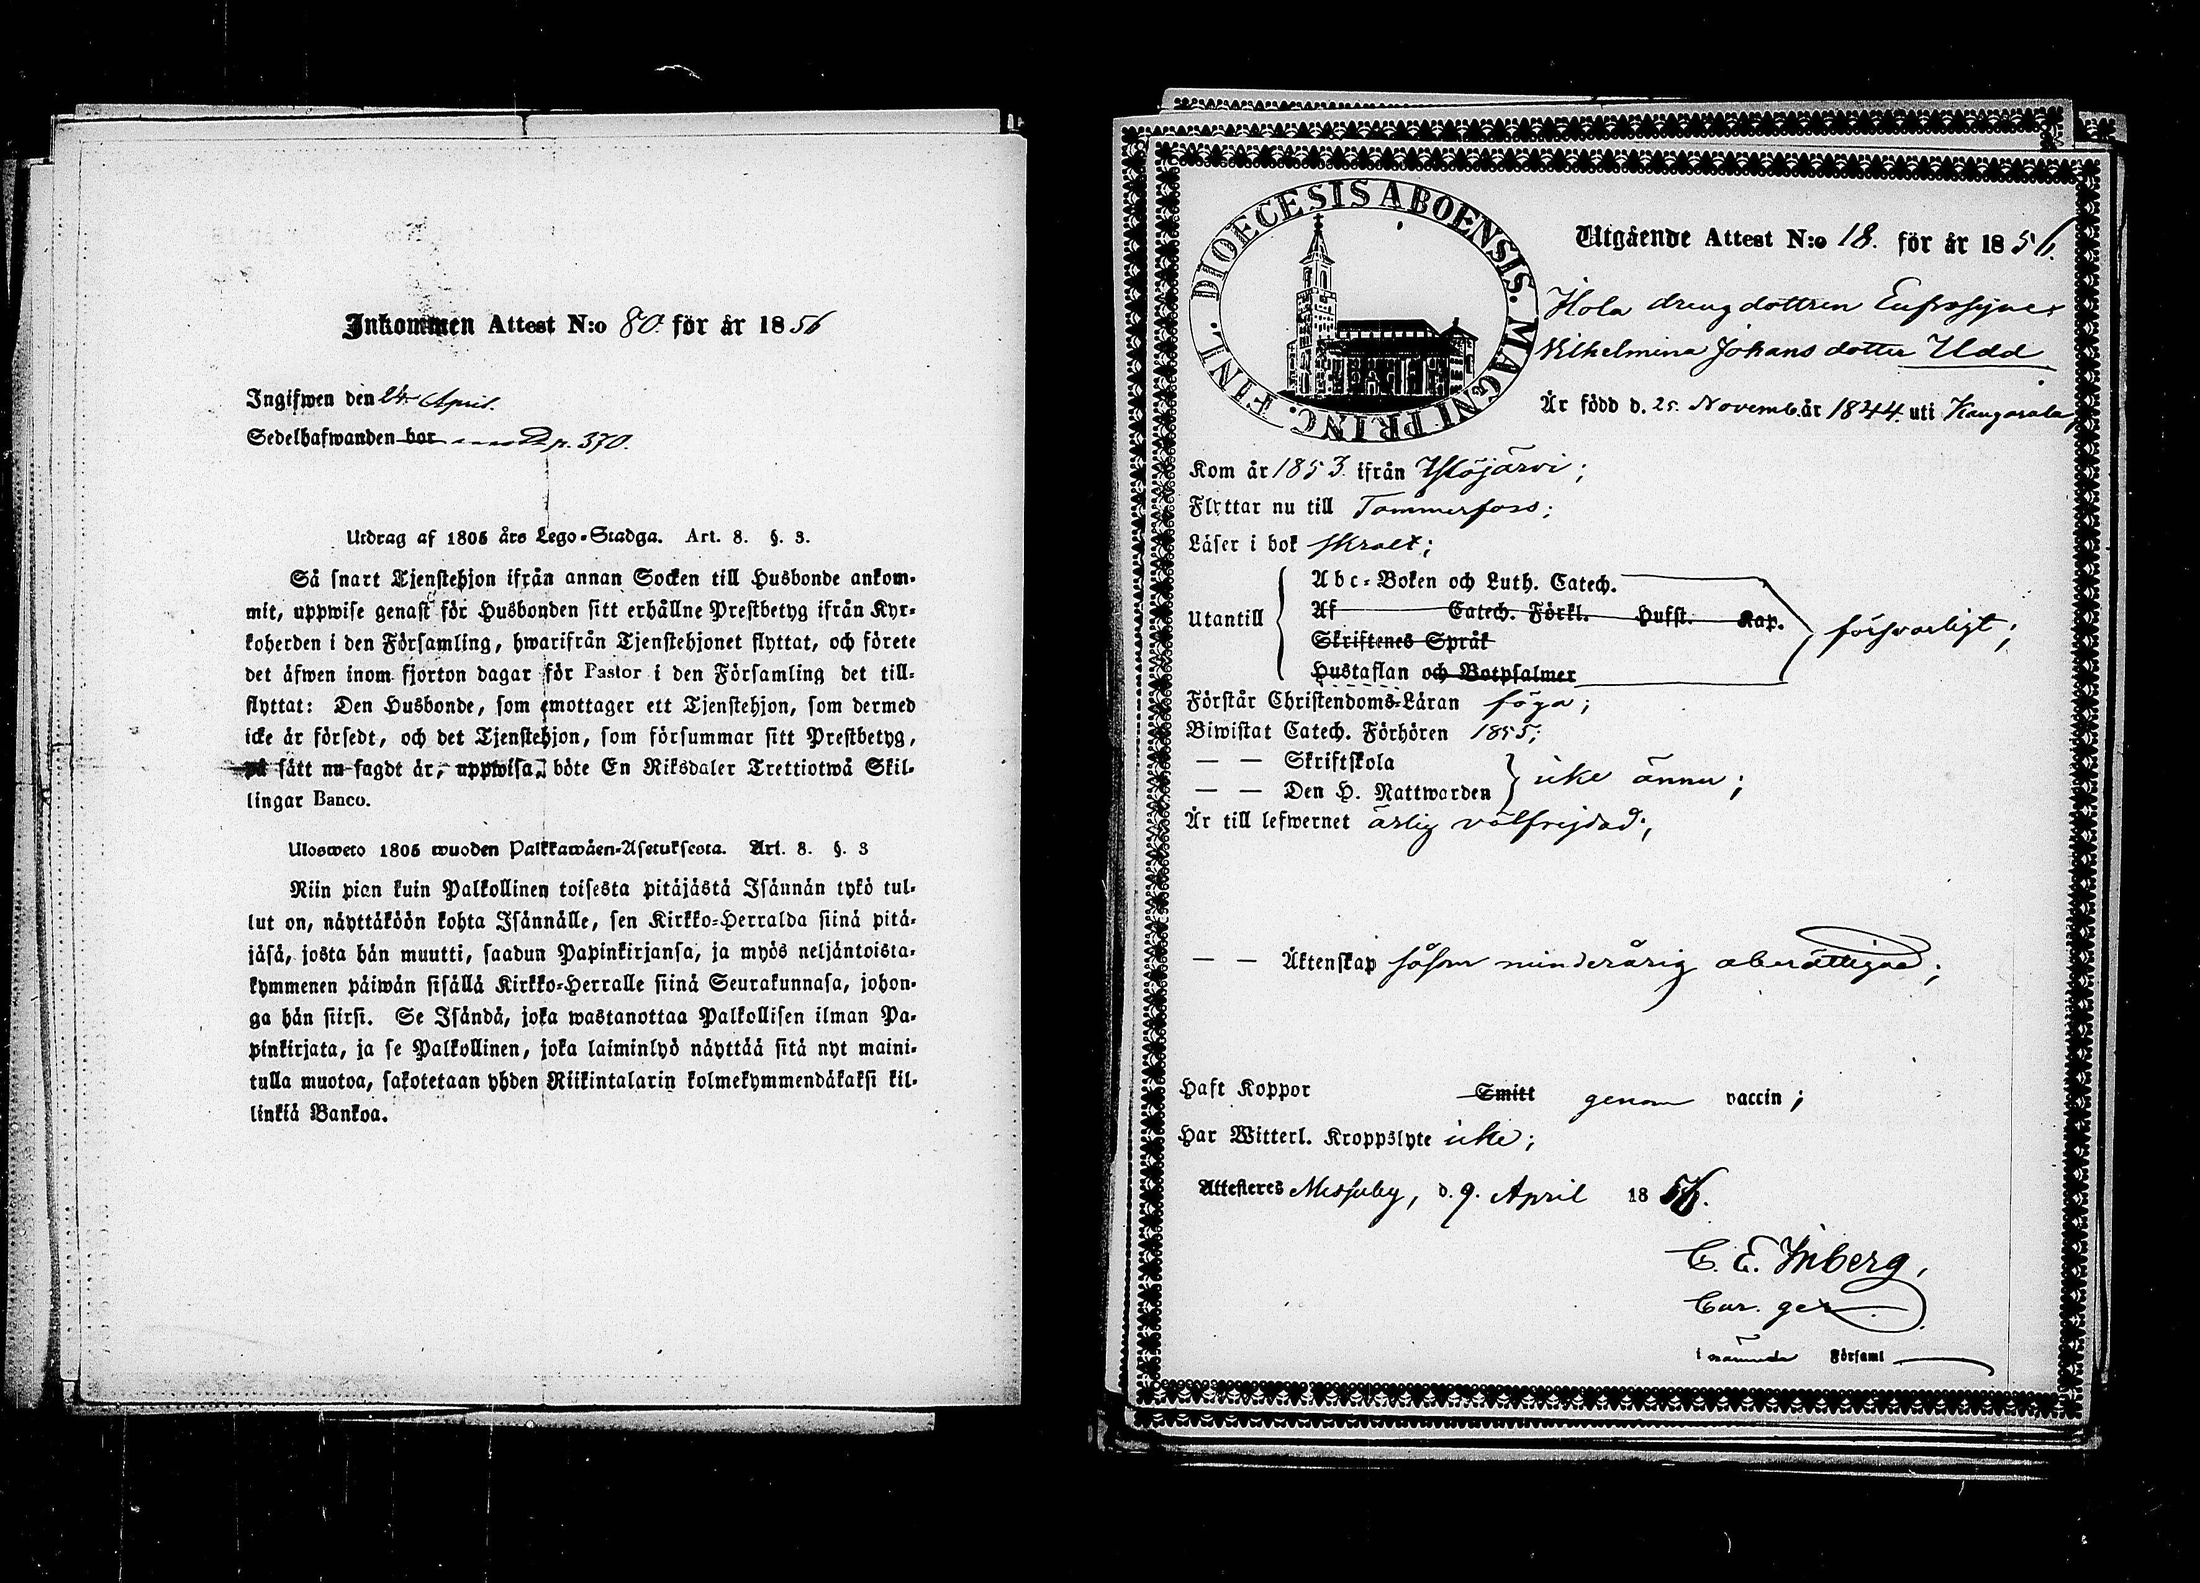 Inkommen Attest N:o 80. för år 1856
Ingifwen den 24 April.
Sedelhafwanden bor p. 370.
Utdrag af 1805 års Lego-Stadga. Art. 8. §. 3.
Så snart Tjenstehjon ifrån annan Socken till Husbonde ankom-
mit, uppwise genast för Husbonden sitt erhållne Prestbetyg ifrån Kyr-
koherden i den Församling, hwarifrån Tjenstehjonet flyttat, och förete
det äfwen inom fjorton dagar för Pastor i den Församling det till-
flyttat: Den Husbonde, som emottager ett Tjenstehjon, som dermed
icke är försedt, och det Tjenstehjon, som försummar sitt Prestbetyg,
på sätt nu sagdt är, uppwisa, böte En Riksdaler Trettiotwå Skil-
lingar Banco.
Ulosweto 1805 wuoden Palkkawäen-Asetuksesta. Art. 8. §. 3
Niin pian kuin Palkollinen toisesta pitäjästä Isännän tykö tul-
lut on, näyttäköön kohta Isännälle, sen Kirkko-Herralda siinä pitä-
jäsä, josta hän muutti, saadun Papinkirjansa, ja myös neljäntoista-
kymmenen päiwän sisällä Kirkko-Herralle siinä Seurakunnasa, johon-
ga hän siirsi. Se Isändä, joka wastanottaa Palkollisen ilman Pa-
pinkirjata, ja se Palkollinen, joka laiminlyö näyttää sitä nyt maini-
tulla muotoa, sakotetaan yhden Riikintalarin kolmekymmendäkaksi kil-
linkiä Bankoa.
DIOECESIS ABOENSIS. MAGNI PRINC. FINL.
Utgående Attest N:o 18. för år 1856.
drengdottren Eufrosyne
Wilhelmina Johansdotter Udd
Är född d. 25. Novemb. år 1844. uti Kangasala,
Kom år 1853. ifrån Ylöjärvi;
Flyttar nu till Tammerfors;
Läser i bok swalt;
Utantill
Abc-Boken och Luth. Catech.
Af Catech. Förkl. Hufst. Kap.
Skriftenes Språk
Hustaflan och Botpsalmer
försvarligt;
Förstår Christendoms-Läran föga;
Biwistat Catech. Förhören 1855;
— — Skriftskola
— — Den H. Nattwarden
icke ännu;
Är till lefwernet ärlig välfrejdad;
— — Äktenskap såsom minderårig oberättigad;
Haft Koppor Smitt genom vaccin;
Har Witterl. Kroppslyte icke;
Attesteres Messuby, d. 9. April 1856.
C. E. Inberg,
Cur. ger.
i nämnde Församl